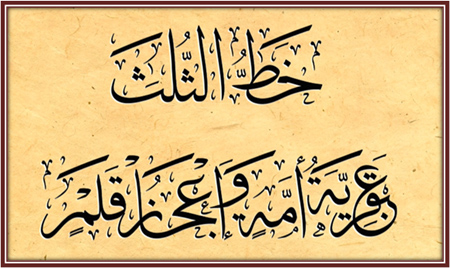 خَطُّ الثُّلث
عبقريّة أمّةٍ وَإعجَازُ قَلَمٍ